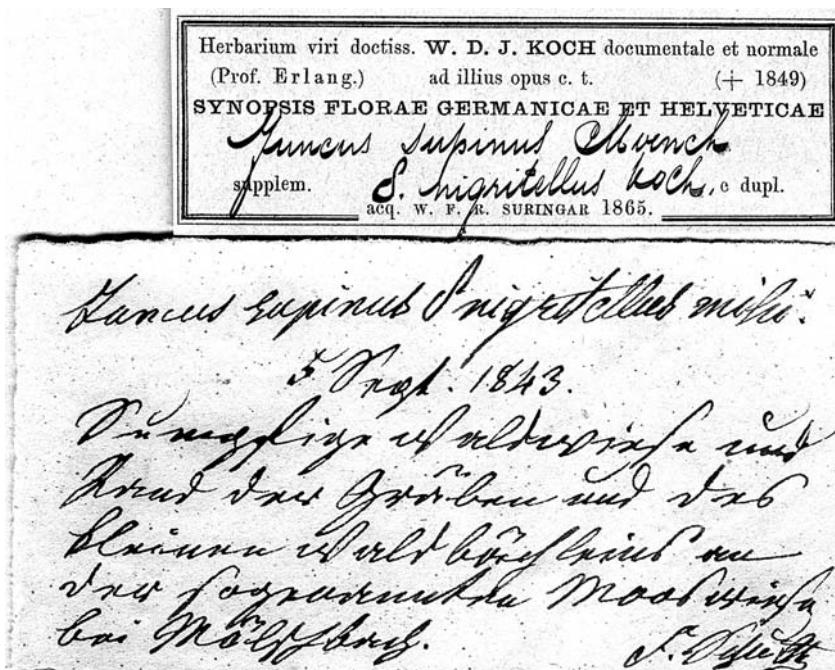 Herbarium viri doctiss. W. D. J. KOCH documentale et normale
(Prof. Erlang.) ad illius opus c. t. († 1849)
SYNOPSIS FLORAE GERMANICAE ET HELVETICAE
Juncus supinus Moench
supplem. δ. nigritellus Koch. c dupl.
acq. W. F. R. SURINGAR 1865.
Juncus supinus δ nigritellus mihi.
5 Sept. 1843.
Sumpfige Waldwiese und
Rand der Gräben und des
kleinen Waldbächleins an
der sogenannten Mooswiese
bei Mölschbach.
F. Schultz